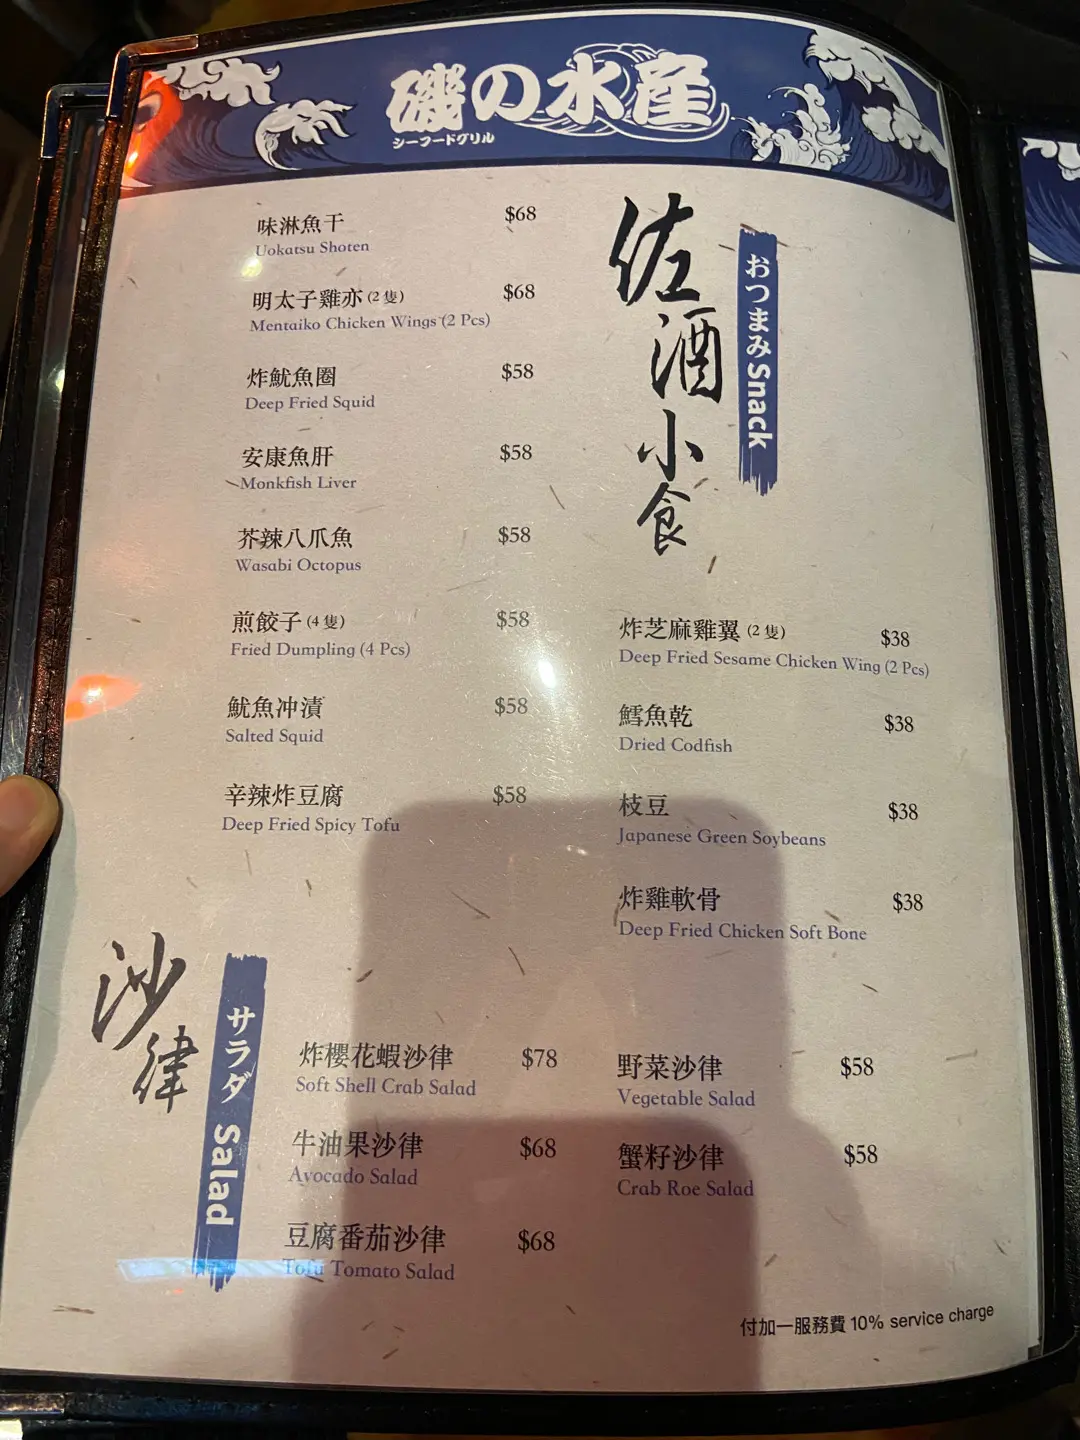 磯の水産
シーフードグリル
佐酒小食
おつまみSnack
味淋魚干 $68
Uokatsu Shoten
明太子雞亦 (2 隻) $68
Mentaiko Chicken Wings (2 Pcs)
炸魷魚圈 $58
Deep Fried Squid
安康魚肝 $58
Monkfish Liver
芥辣八爪魚 $58
Wasabi Octopus
煎餃子 (4 隻) $58
Fried Dumpling (4 Pcs)
魷魚冲漬 $58
Salted Squid
辛辣炸豆腐 $58
Deep Fried Spicy Tofu
炸芝麻雞翼 (2 隻) $38
Deep Fried Sesame Chicken Wing (2 Pcs)
鱈魚乾 $38
Dried Codfish
枝豆 $38
Japanese Green Soybeans
炸雞軟骨 $38
Deep Fried Chicken Soft Bone
沙律
サラダ Salad
炸櫻花蝦沙律 $78
Soft Shell Crab Salad
牛油果沙律 $68
Avocado Salad
豆腐番茄沙律 $68
Tofu Tomato Salad
野菜沙律 $58
Vegetable Salad
蟹籽沙律 $58
Crab Roe Salad
付加一服務費 10% service charge